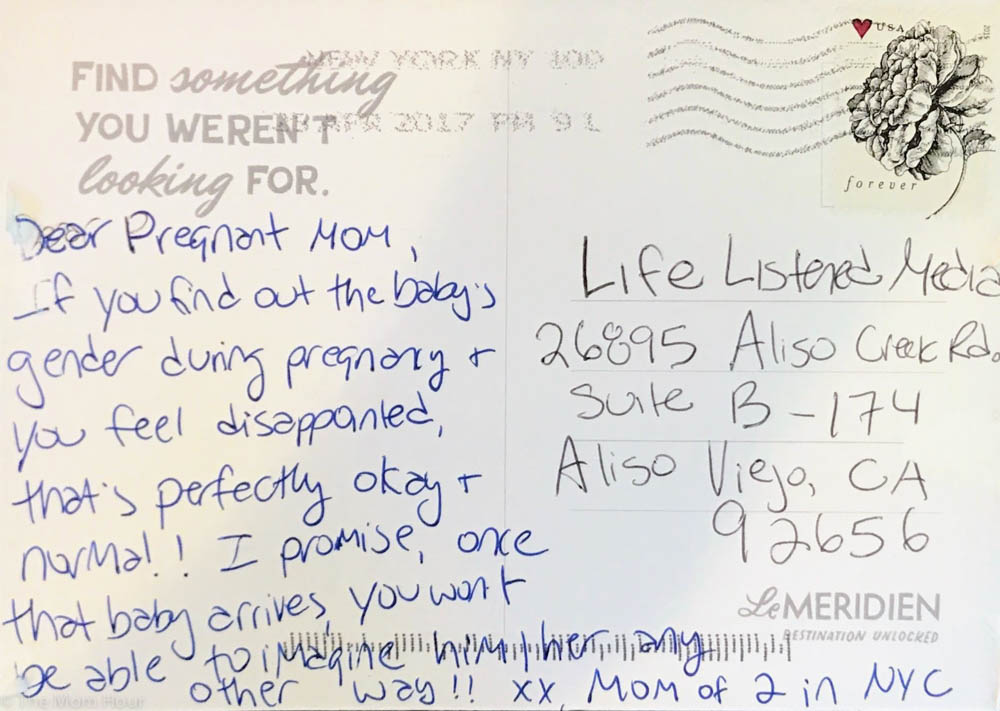 FIND something
YOU WEREN'T
looking FOR.
NEW YORK NY 100
APR 2017 PM 9 L
USA
forever
Dear Pregnant Mom,
If you find out the baby's
gender during pregnancy +
you feel disappointed,
that's perfectly okay +
normal! I promise, once
that baby arrives, you won't
be able to imagine him/her any
other way!! xx, Mom of 2 in NYC
Life Listened Media
26895 Aliso Creek Rd.
Suite B-174
Aliso Viejo, CA
92656
Le MERIDIEN
DESTINATION UNLOCKED
© The Mom Hour